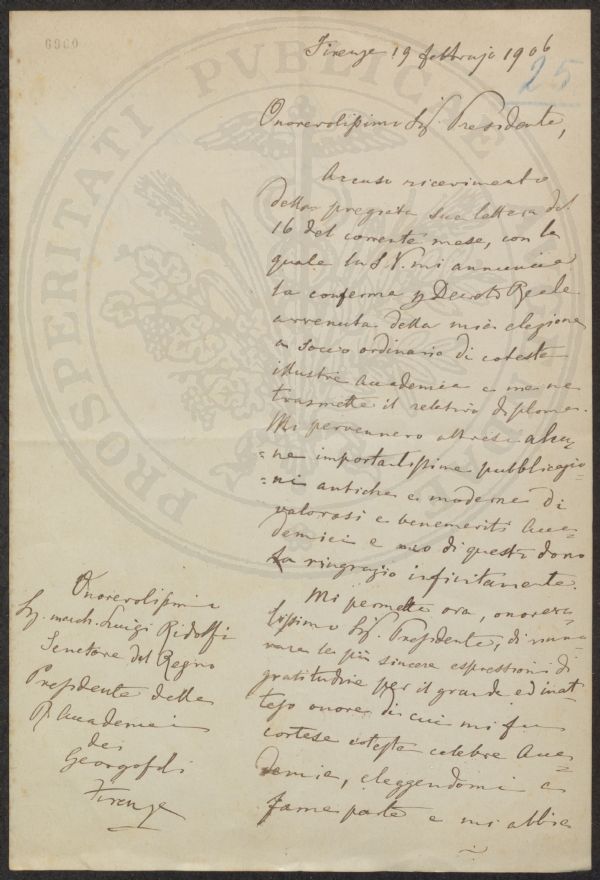 6960
Firenze 19 febbrajo 1906
25
Onorevolissimo Sig. Presidente,
Accuso ricevimento
della pregiata sua lettera del
16 del corrente mese, con la
quale la S. V. mi annuncia
la conferma p Decreto Reale
avvenuta della mia elezione
a socio ordinario di cotesta
illustre Accademia e me ne
trasmette il relativo diploma.
Mi pervennero altresì alcu=
=ne importantissime pubblicazio=
=ni antiche e moderne di
valorosi e benemeriti Acca=
demici e di questo dono
La ringrazio infinitamente.
Mi permetta ora, onorevo=
lissimo Sig. Presidente, di rinno=
vare le più sincere espressioni di
gratitudine per il grande ed inat=
teso onore di cui mi fu
cortese cotesta celebre Acca=
demia, eleggendomi a
farne parte e mi abbia
Onorevolissimo
Sig. march. Luigi Ridolfi
Senatore del Regno
Presidente della
R. Accademia
dei
Georgofili
Firenze
PROSPERITATI PUBLICAE